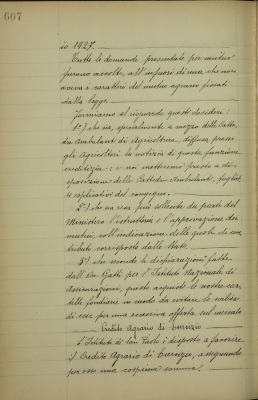 607
io 1927.-
Tutte le domande presentate per mutuo
furono accolte, all'infuori di una, che non
aveva i caratteri del mutuo agrario fissati
dalla legge.
Formiamo al riguardo questi desideri:
1°) che sia, specialmente a mezzo delle Catte-
dre Ambulanti di Agricoltura, diffusa presso
gli Agricoltori la notizia di questa funzione
creditizia: e noi metteremo presto a di-
sposizione delle Cattedre Ambulanti, foglietti
esplicativi del congegno.
2°) che sia resa più sollecita da parte del
Ministero l'istruttoria e l'approvazione dei
mutui, coll'indicazione delle quote di con-
tributo corrisposte dallo Stato.
3°) che secondo le dichiarazioni fatte
dall'On. Gatti per l'Istituto Nazionale di
Assicurazioni, questo acquisti le nostre car-
telle fondiarie in modo da evitare lo
di esse per una eccessiva offerta sul mercato
Credito Agrario di Esercizio
L'Istituto di San Paolo è disposto a favorire
il Credito Agrario di Esercizio, assegnando
per esso una cospicua somma.